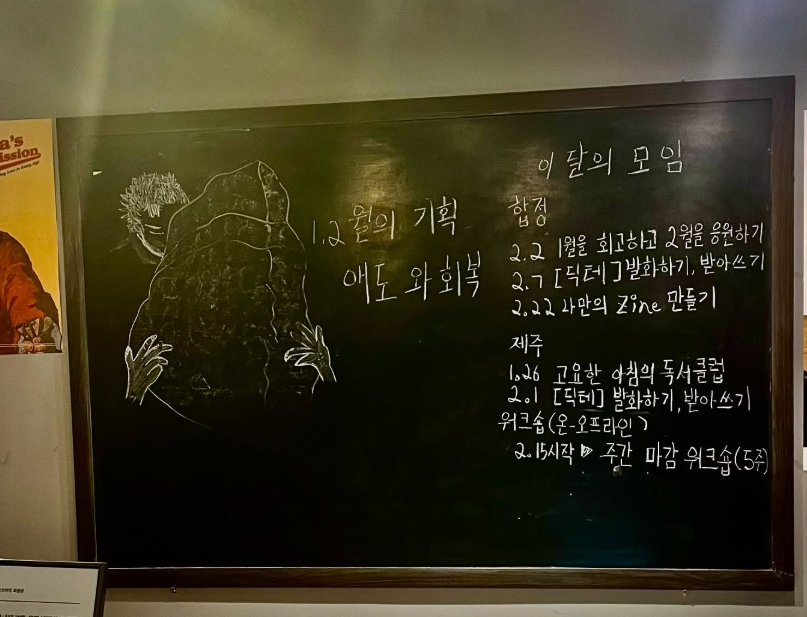 a's
ission
1,2월의 기획
애도와 회복
이 달의 모임
합정
2.2 1월을 회고하고 2월을 응원하기
2.7 [딕테] 발화하기, 받아쓰기
2.22 나만의 Zine 만들기
제주
1.26 고요한 아침의 독서클럽
2.1 [딕테] 발화하기, 받아쓰기
워크숍(온-오프라인)
2.15시작 ▶ 주간 마감 워크숍(5주)